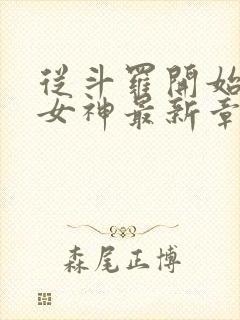 從斗羅開始
女神最新章
森尾正博